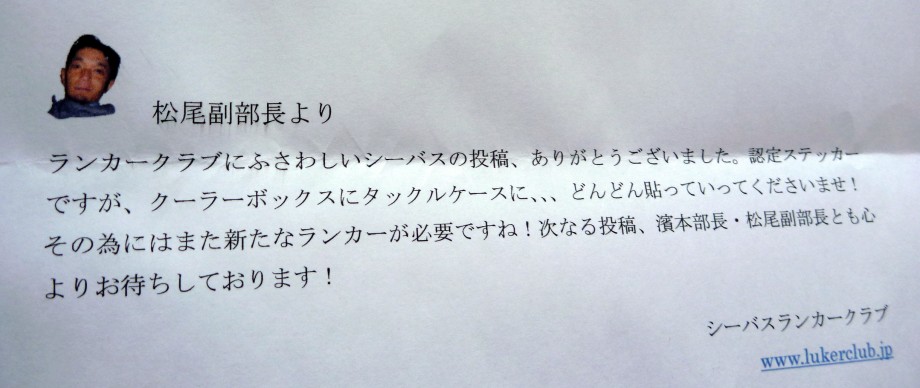 松尾副部長より
ランカークラブにふさわしいシーバスの投稿、ありがとうございました。認定ステッカー
ですが、クーラーボックスにタックルケースに、、、どんどん貼っていってくださいませ！
その為にはまた新たなランカーが必要ですね！次なる投稿、濱本部長・松尾副部長とも心
よりお待ちしております！
シーバスランカークラブ
www.lukerclub.jp